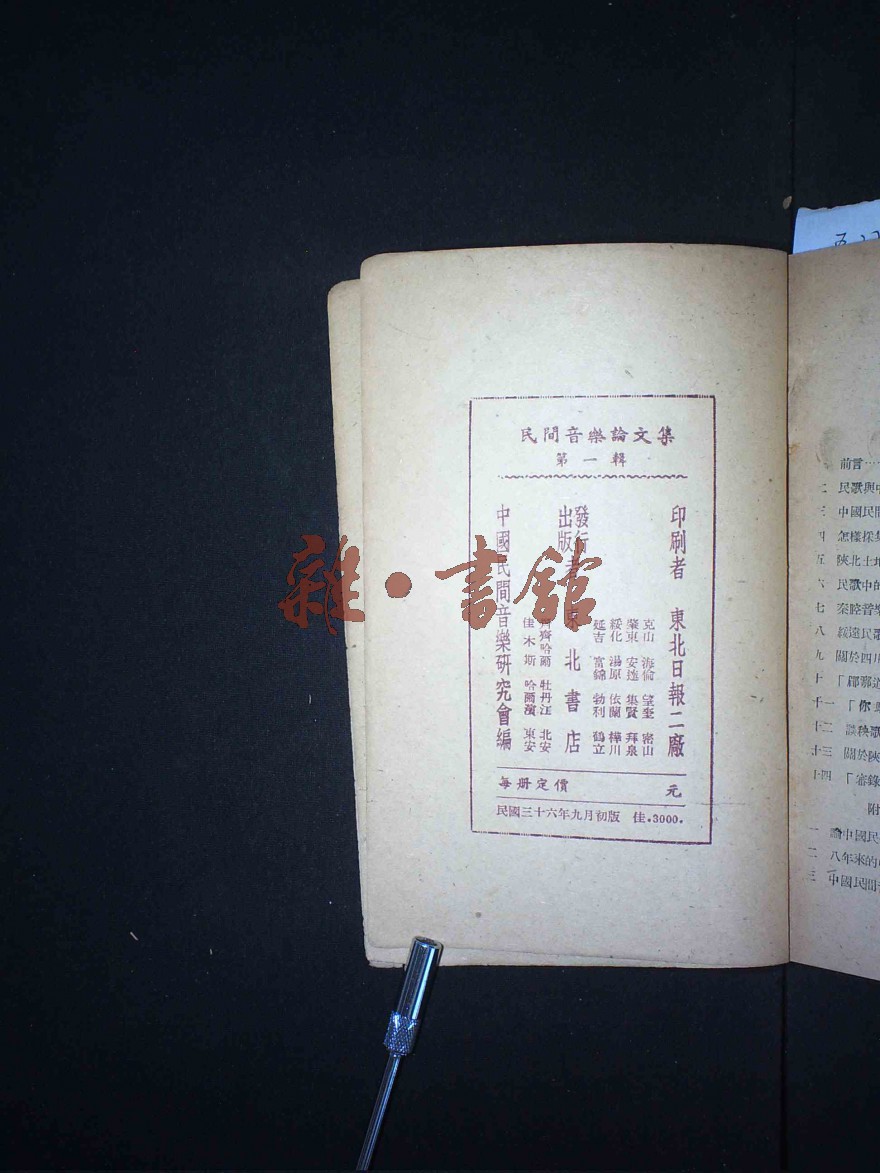 民間音樂論文集
第一輯
印刷者 東北日報二廠
克山 海倫 望奎 密山
肇東 安達 集賢 拜泉
綏化 湯原 依蘭 樺川
延吉 富錦 勃利 鶴立
發行
出版者 東北書店
齊齊哈爾 牡丹江 北安
佳木斯 哈爾濱 東安
中國民間音樂研究會編
每册定價 元
民國三十六年九月初版 佳.3000.
雜·書館
前言
二 民歌與中
三 中國民間
四 怎樣採集
五 陝北土地
六 民歌中的
七 秦腔音樂
八 綏遠民歌
九 關於四川
十 「郿鄠道
十一 「你
十二 談秧歌
十三 關於陝
十四 「審錄
附
一 論中國民
二 八年來的
三 中國民間音